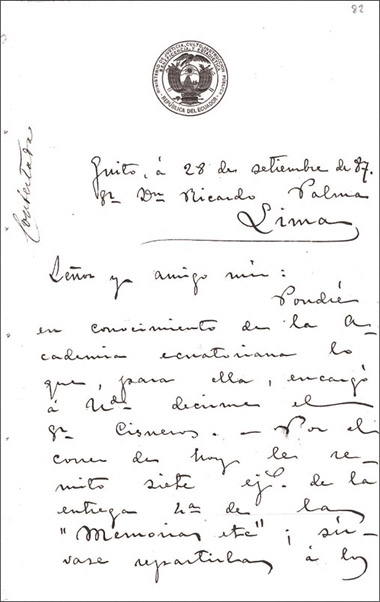 82
MINISTERIO DE JUSTICIA, CULTO, INSTRUCCION PUBLICA,
BENEFICENCIA Y ESTADISTICA
REPÚBLICA DEL ECUADOR
Contestada
Quito, á 28 de setiembre de 87.
Sr Dn Ricardo Palma
Lima
Señor y amigo mío:
Pondré
en conocimiento de la A-
cademia ecuatoriana lo
que, para ella, encargó
á Ud. decirme el
Sr Cisneros. — Por el
correo de hoy les re-
mito siete ejs. de la
entrega 4a de las
"Memorias etc"; sír-
vase repartirlas á los